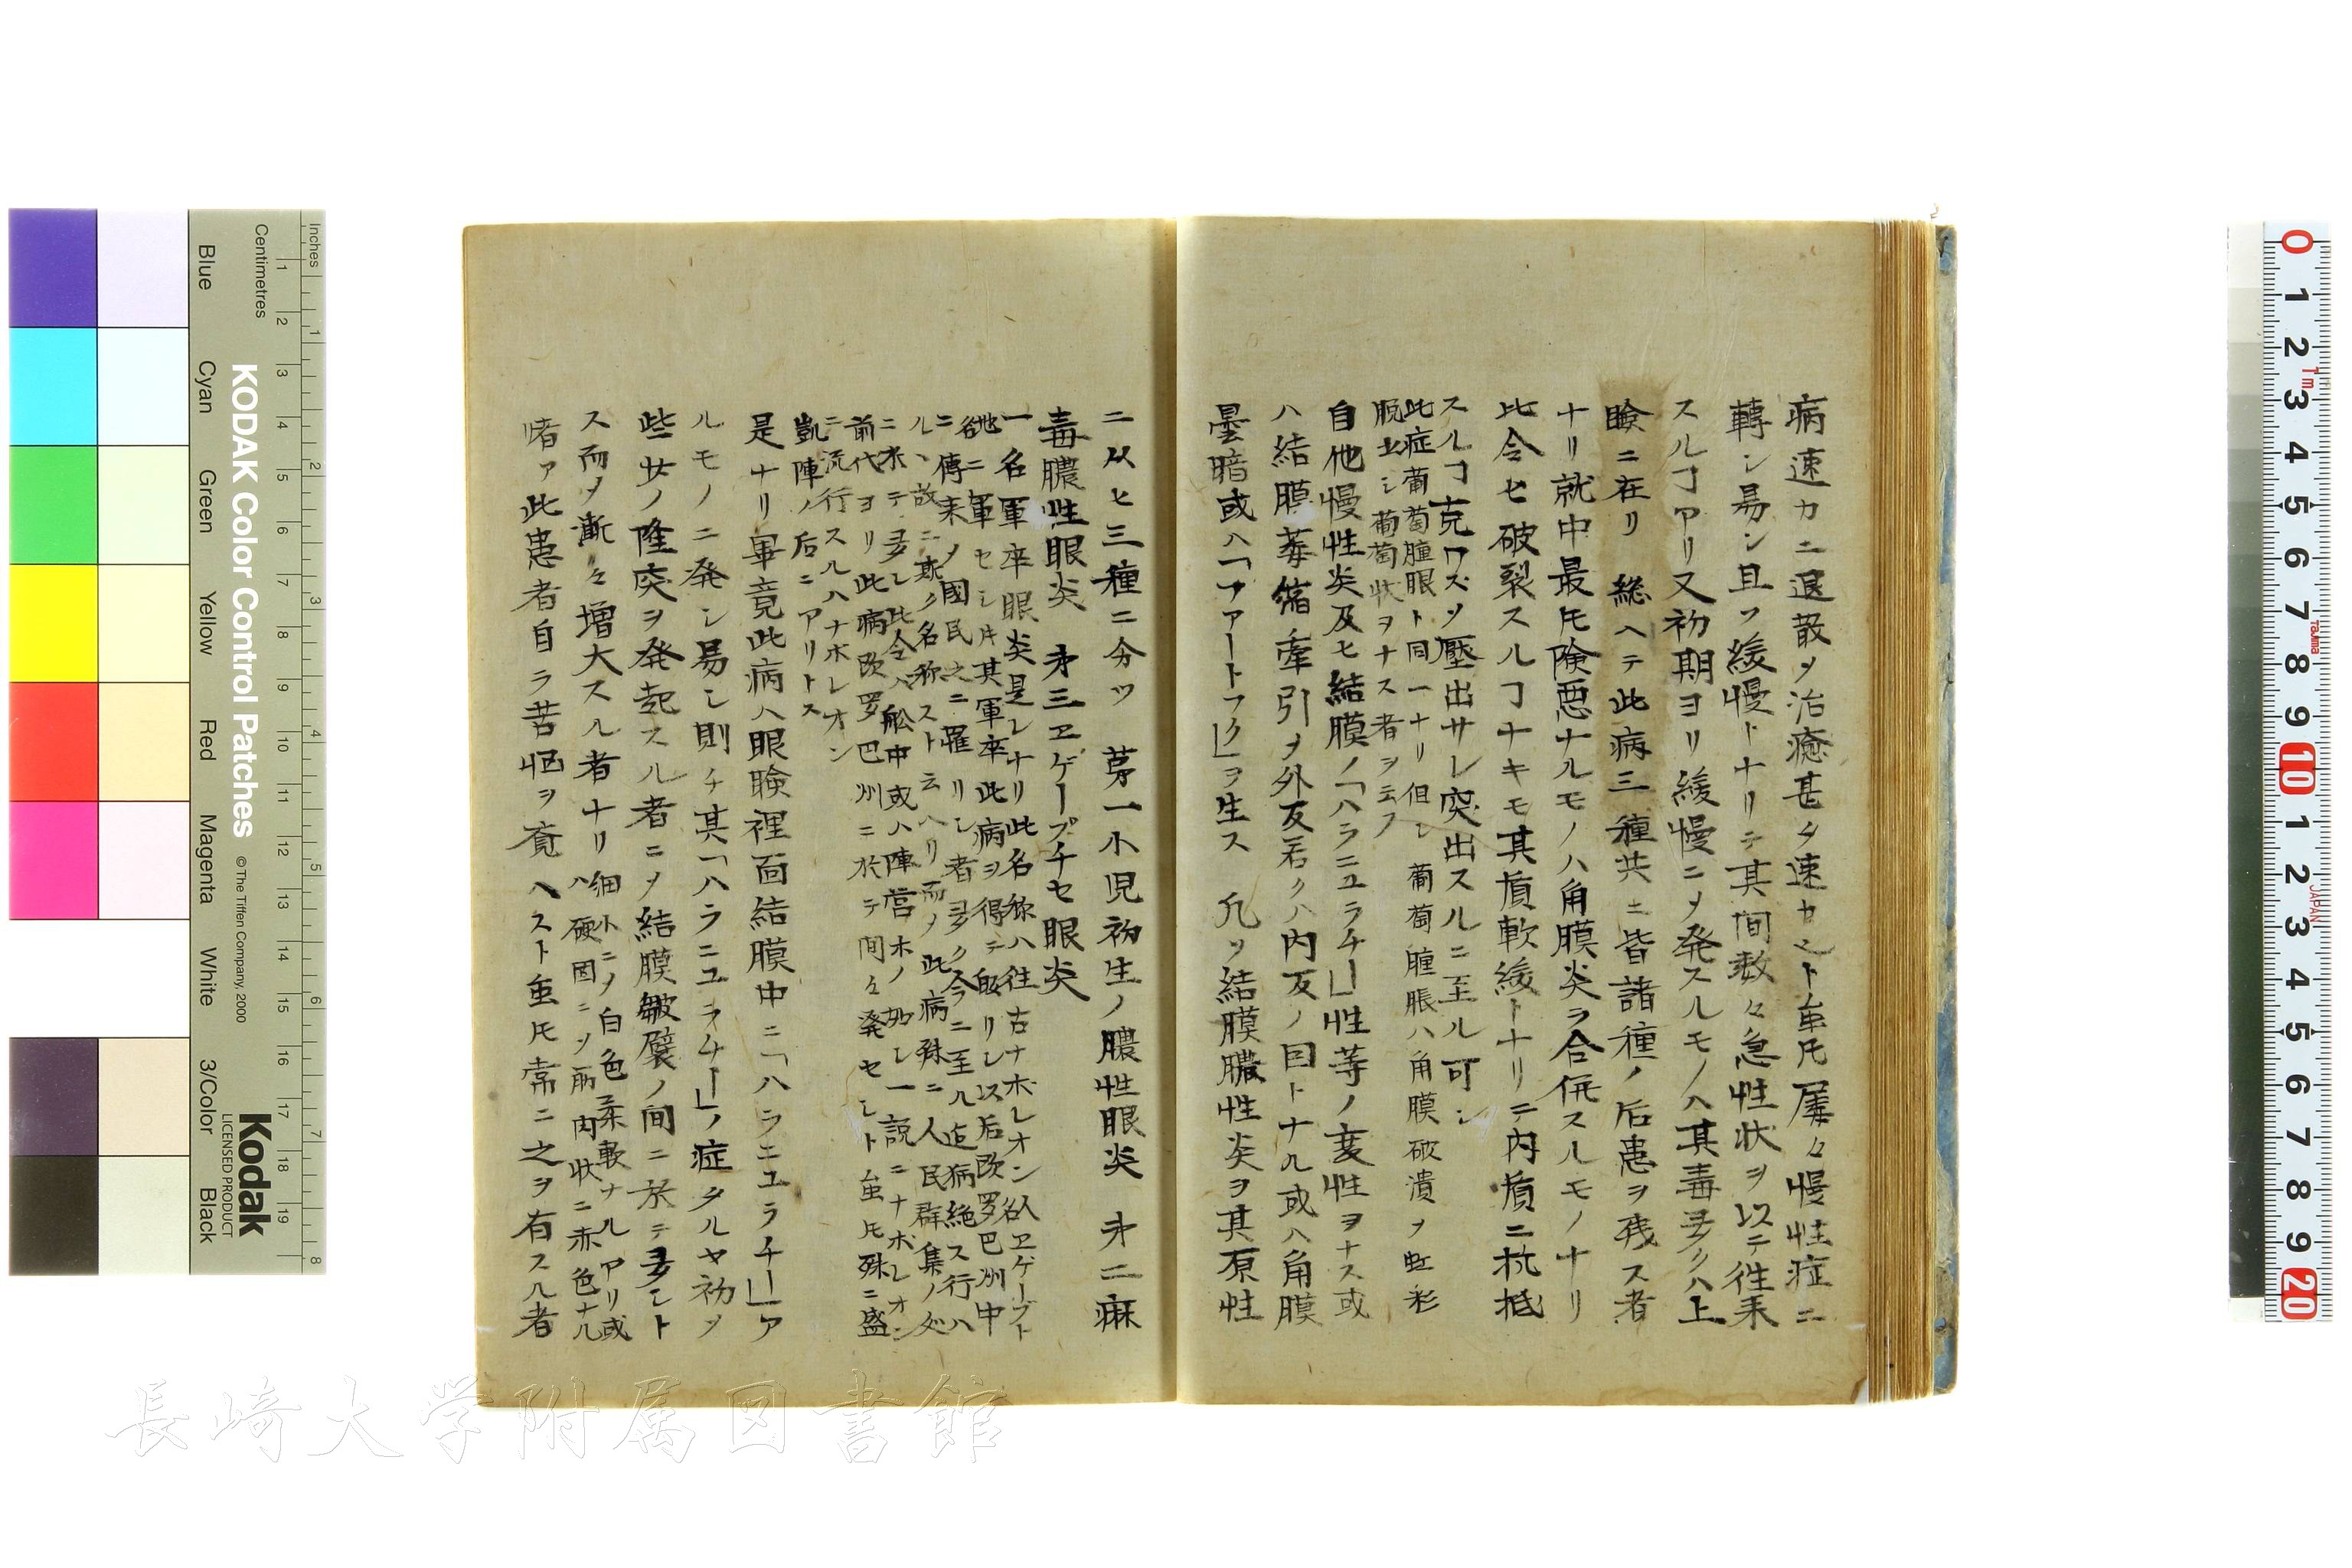 病速カニ退散ヲ治癒甚タ速カ之ト虽𪜈屡々慢性症ニ
轉シ易シ且ツ緩慢トナリテ其間数々急性状ヲ以テ徃来
スルヿアリ又初期ヨリ緩慢ニヲ発スルモノハ其毒多クハ上
瞼ニ在リ 総ヘテ此病三種共ニ皆諸種ノ后患ヲ残ス者
ナリ就中最𪜈険悪ナルモノハ角膜炎ヲ合併スルモノナリ
比令ヒ破裂スルヿナキモ其質軟緩トナリテ内質ニ抗抵
スルヿ克ワズヲ壓出サレ突出スルニ至ル可シ
此症葡萄腫眼ト同一ナリ但シ葡萄腫脹ハ角膜破潰ヲ虹彩
脱出シ葡萄状ヲナス者ヲ云フ
自他慢性炎及ヒ結膜ノ「ハラニユラチー」性等ノ変性ヲナス或
ハ結膜萎縮牽引ヲ外反若クハ内反ノ因トナル或ハ角膜
曇暗或ハ「アアートフク」ヲ生ス 凡ソ結膜膿性炎ヲ其原性
ニ从ヒ三種ニ分ツ 苐一小児初生ノ膿性眼炎 苐二麻
毒膿性眼炎 苐三ヱゲープチセ眼炎
一名軍卒眼炎是レナリ此名称ハ往古ナポレオン敛ヱゲープト
地ニ軍セシ片其軍卒此病ヲ得テ皈リレ以后欧罗巴洲中
ニ傳来ヲ國民之ニ罹リシ者多ク今ニ至ル迠病絶ス行ハ
ル丶故ニ斯ク名称スト云ヘリ而ヲ此病殊ニ人民群集ノ処
ニ来テ多レ此令ハ舩中或ハ陣営ホノ如レ一説ニナポレオン
前代ヨリ此病欧罗巴州ニ於テ間々発セシト虽𪜈殊ニ盛
ニ流行スルハナホレオン
凱陣ノ后ニアリトス
是ナリ畢竟此病ハ眼瞼裡面結膜中ニ「ハラニユラチー」ア
ルモノニ発シ易シ則チ其「ハラニユラチー」ノ症タルヤ初ヲ
些少ノ隆突ヲ発起スル者ニヲ結膜皺襞ノ間ニ於テ多シト
ス而ヲ漸々増大スル者ナリ
細小ニヲ白色柔軟ナルアリ或
ハ硬固ニヲ肉状ニ赤色ナル
者ア此患者自ラ苦悩ヲ覚ヘスト虽𪜈常ニ之ヲ有スル者
KODAK Color Control Patches
© The Tiffen Company, 2000
Kodak
LICENSED PRODUCT
Inches
Centimetres
Blue
Cyan
Green
Yellow
Red
Magenta
White
3/Color
Black
長崎大学附属図書館